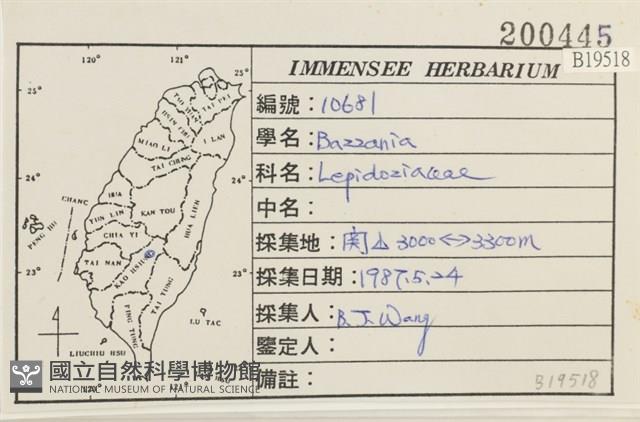 200445
B19518
IMMENSEE HERBARIUM
編號：10681
學名：Bazzania
科名：Lepidoziaceae
中名：
採集地：関山 3000<->3300m
採集日期：1987.5.24
採集人：B.J. Wang
鑒定人：
備註：
B19518
120°
121°
25°
25°
TAI PEI
I LAN
MIAO LI
TAI CHUNG
24°
24°
CHANG
HUA
YUN LIN
KAN TOU
HUA LIEN
PENG HU
CHIA YI
TAI NAN
KAO HSIUNG
23°
23°
TAI TUNG
PING TUNG
LU TAO
LIUCHIU HSU
國立自然科學博物館
NATIONAL MUSEUM OF NATURAL SCIENCE
120°
121°